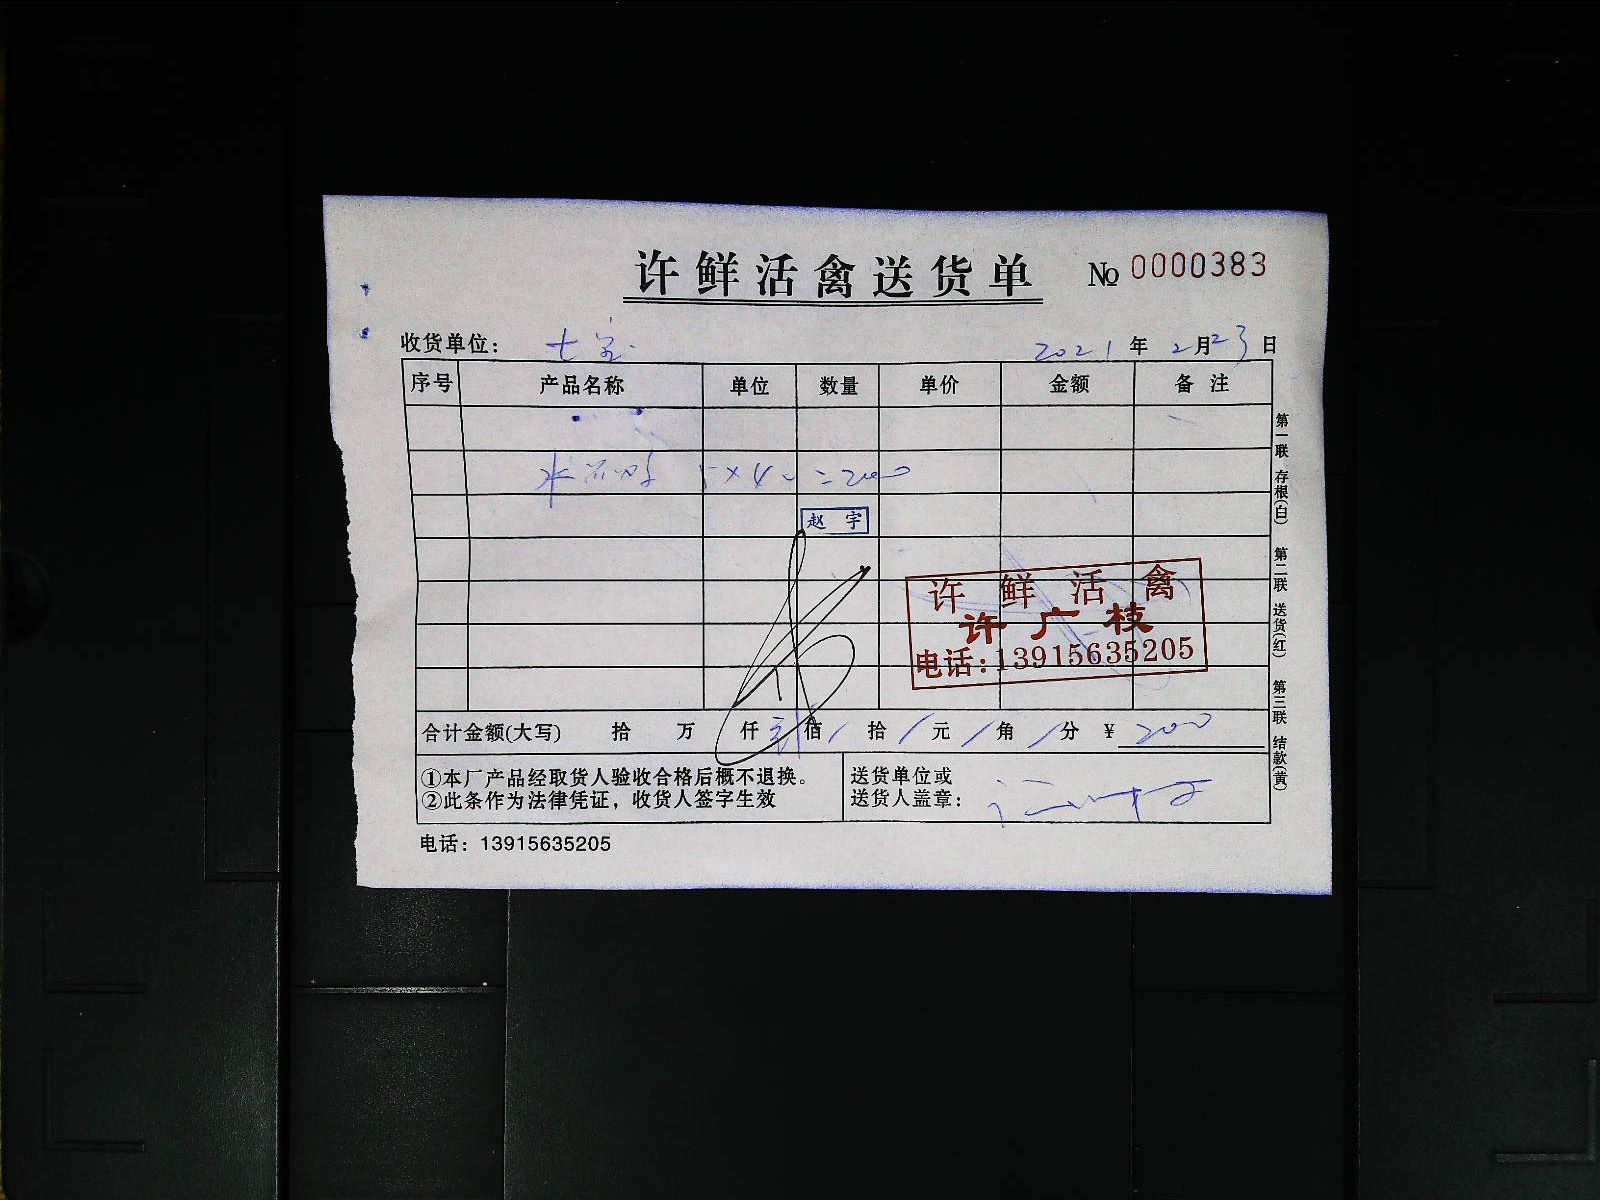 许鲜活禽送货单 № 0000383
收货单位： 七宝 2021 年 2 月 23 日
序号 产品名称 单位 数量 单价 金额 备注
5×40=200
赵宇
许鲜活禽
许广枝
电话:13915635205
合计金额(大写) 拾 万 仟 贰 佰 / 拾 / 元 / 角 / 分 ¥ 200
①本厂产品经取货人验收合格后概不退换。
②此条作为法律凭证，收货人签字生效
送货单位或
送货人盖章：
电话：13915635205
第一联 存根(白) 第二联 送货(红) 第三联 结款(黄)